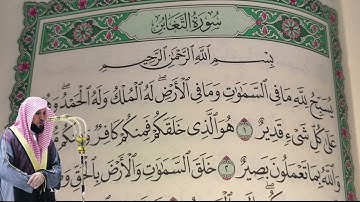 سُورَةُ التَّغَابُنِ
بِسْمِ اللَّهِ الرَّحْمَٰنِ الرَّحِيمِ
يُسَبِّحُ لِلَّهِ مَا فِي السَّمَاوَاتِ وَمَا فِي الْأَرْضِ ۖ لَهُ الْمُلْكُ وَلَهُ الْحَمْدُ ۖ وَهُوَ
عَلَىٰ كُلِّ شَيْءٍ قَدِيرٌ ١ هُوَ الَّذِي خَلَقَكُمْ فَمِنكُمْ كَافِرٌ وَمِنكُم
وَاللَّهُ بِمَا تَعْمَلُونَ بَصِيرٌ ٢ خَلَقَ السَّمَاوَاتِ وَالْأَرْضَ بِالْحَقِّ